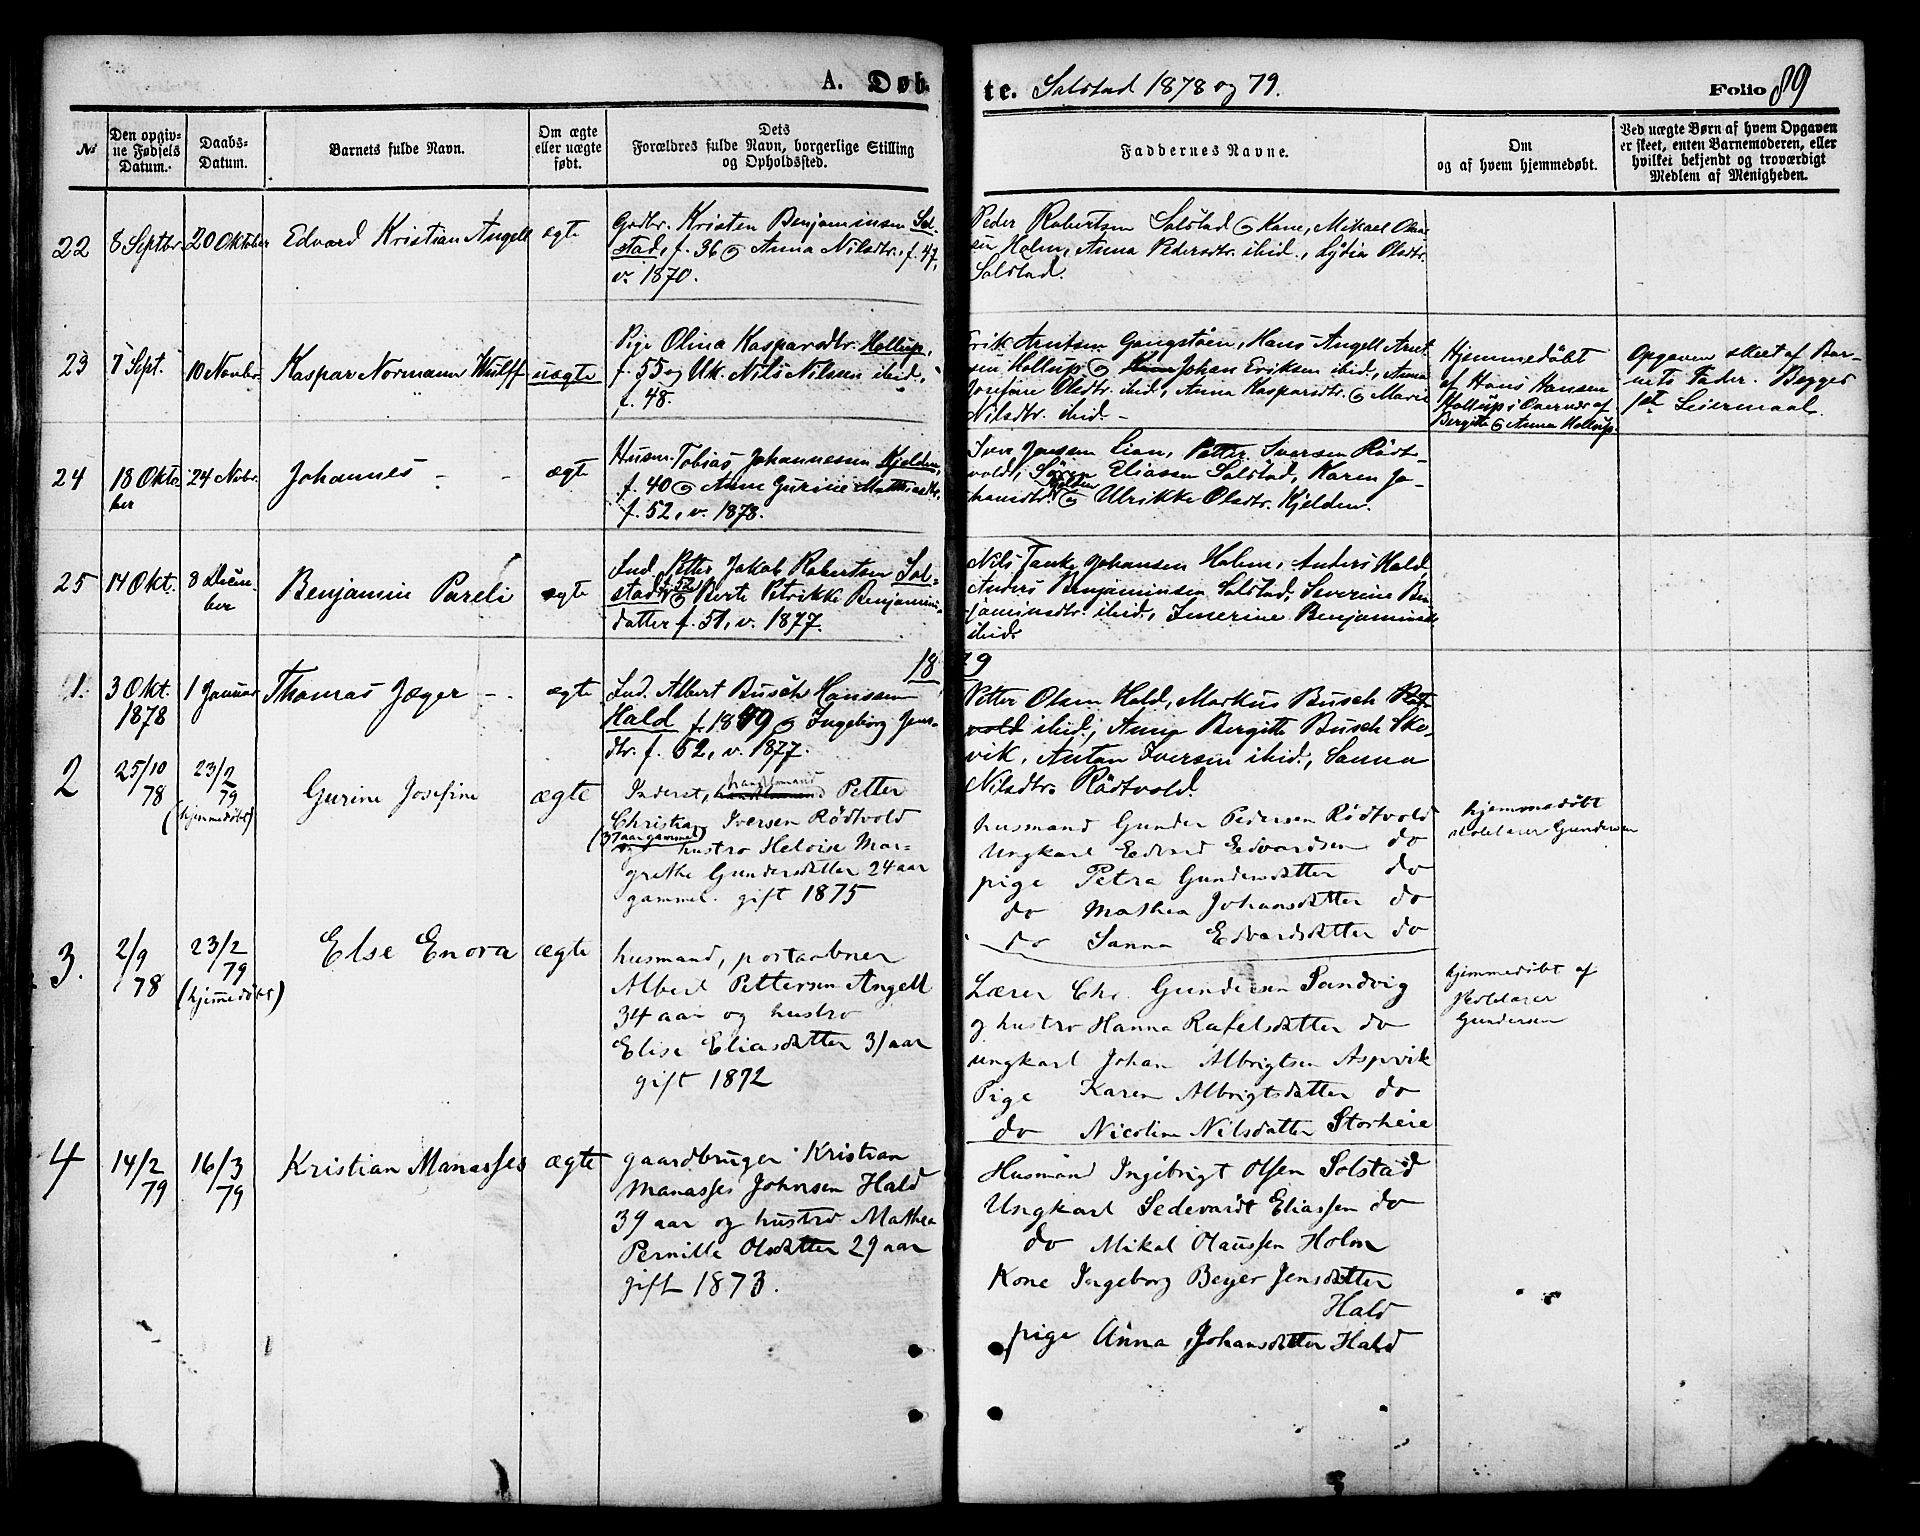 A. Døbte. Solstad 1878 og 79.
Folio 89
No
Den opgivne Fødsels Datum.
Daabs-Datum.
Barnets fulde Navn.
Om ægte eller uægte født.
Dets Forældres fulde Navn, borgerlige Stilling og Opholdssted.
Faddernes Navne.
Om og af hvem hjemmedøbt.
Ved uægte Børn af hvem Opgaven er skeet, enten Barnemoderen, eller hvilket bekjendt og troværdigt Medlem af Menigheden.
22
8 Septbr.
20 Oktober
Edvard Kristian Angell
ægte
Gadbr. Kristen Benjaminsen Sol-
stad, f. 36 og Anna Nilsdtr., f. 47,
v. 1870.
Peder Robertsen Solstad og Kone, Mikael Olau-
sen Holm, Anna Pedersdtr. ibid., Lydia Olsdtr.
Solstad.
23
7 Sept.
10 Novbr.
Kaspar Normann Wulff
uægte
Pige Olina Kaspardtr. Hollup,
f. 55 og Uk. Nils Nilssen ibid,
f. 48.
Erik Arntsen Gangstøen, Hans Angell Arnt-
sen Hollup og Johan Eriksen ibid, Anna
Josefine Olsdtr. ibid, Anna Kaspardtr. og Marie
Nilsdtr. ibid. -
Hjemmedöbt
af Hans Hansen
Hollup i Overvær af
Bergitte og Anna Hollup.
Opgaven skeet af Bar-
nets Fader. Begges
1ste Leiermaal.
24
18 Okto-
ber
24 Nobr.
Johannes - -
ægte
Husm. Tobias Johannesen Kjelden,
f. 40 og Anne Gurine Mathiasdtr,
f. 52, v. 1878.
Iver Jensen Lian, Petter Iversen Rödt-
vold, Sören Eliasen Solstad, Karen Jo-
hansdtr. Kjelden og Ulrikke Olsdtr. Kjelden.
25
14 Okt.
8 Decem-
ber
Benjamin Pareli
ægte
Ind. Petter Jakob Robertsen Sol-
stad f. 52 og Berte Petrikke Benjamins-
datter f. 51, v. 1877.
Nils Tanke Johansen Holm, Anders Hald
Anders Benjaminsen Solstad, Severine Ben-
jaminsdtr. ibid., Imerine Benjaminsd.
ibid.
1879
1.
3 Okt.
1878
1 Januar
Thomas Jæger - -
ægte
Ind. Albert Busch Hanssen
Hald f. 1849 og Ingeborg Jens-
dtr. f. 52, v. 1877.
Petter Olsen Hald, Markus Busch Röt-
vold ibid, Anna Bergitte Busch Sko-
vik, Anton Iversen ibid., Sanna
Nilsdtr. Rödtvold.
2
25/10
78
23/2
79
(hjemmedøbt)
Gurine Josefine
ægte
Inderst, Petter
Christian Iversen Rødtvold
(37 aar gammel)
og hustro Heloise Mar-
grethe Gundersdatter 24 aar
gammel. gift 1875
husmand Gunder Pedersen Rødtvold
Ungkarl Edvard Edvardsen do
pige Petra Gundersdatter do
do Mathea Johansdatter do
do Sanna Edvardsdatter do
hjemmedøbt
Gundersen
3.
2/9
78
23/2
79
(hjemmedøbt)
Else Enora
ægte
husmand, postaabner
Albert Pettersen Angell
34 aar og hustro
Elise Eliasdatter 31 aar
gift 1872
Lærer Chr. Gundersen Sandvig
og hustro Hanna Rafelsdatter do
ungkarl Johan Albrigtsen Aspvik
Pige Karen Albrigtsdatter do
do Nicoline Nilsdatter Storheie
hjemmedøbt af
Skolelærer
Gundersen
4
14/2
79
16/3
79
Kristian Manasses
ægte
gaardbruger Kristian
Manasses Johnsen Hald
39 aar og hustro Mathea
Pernille Olsdatter 29 aar
gift 1873.
Husmand Ingebrigt Olsen Solstad
Ungkarl Sedevardt Eliassen do
do Mikal Olaussen Holm
Kone Ingeborg Beyer Jensdatter
Hald
pige Anna Johansdatter Hald